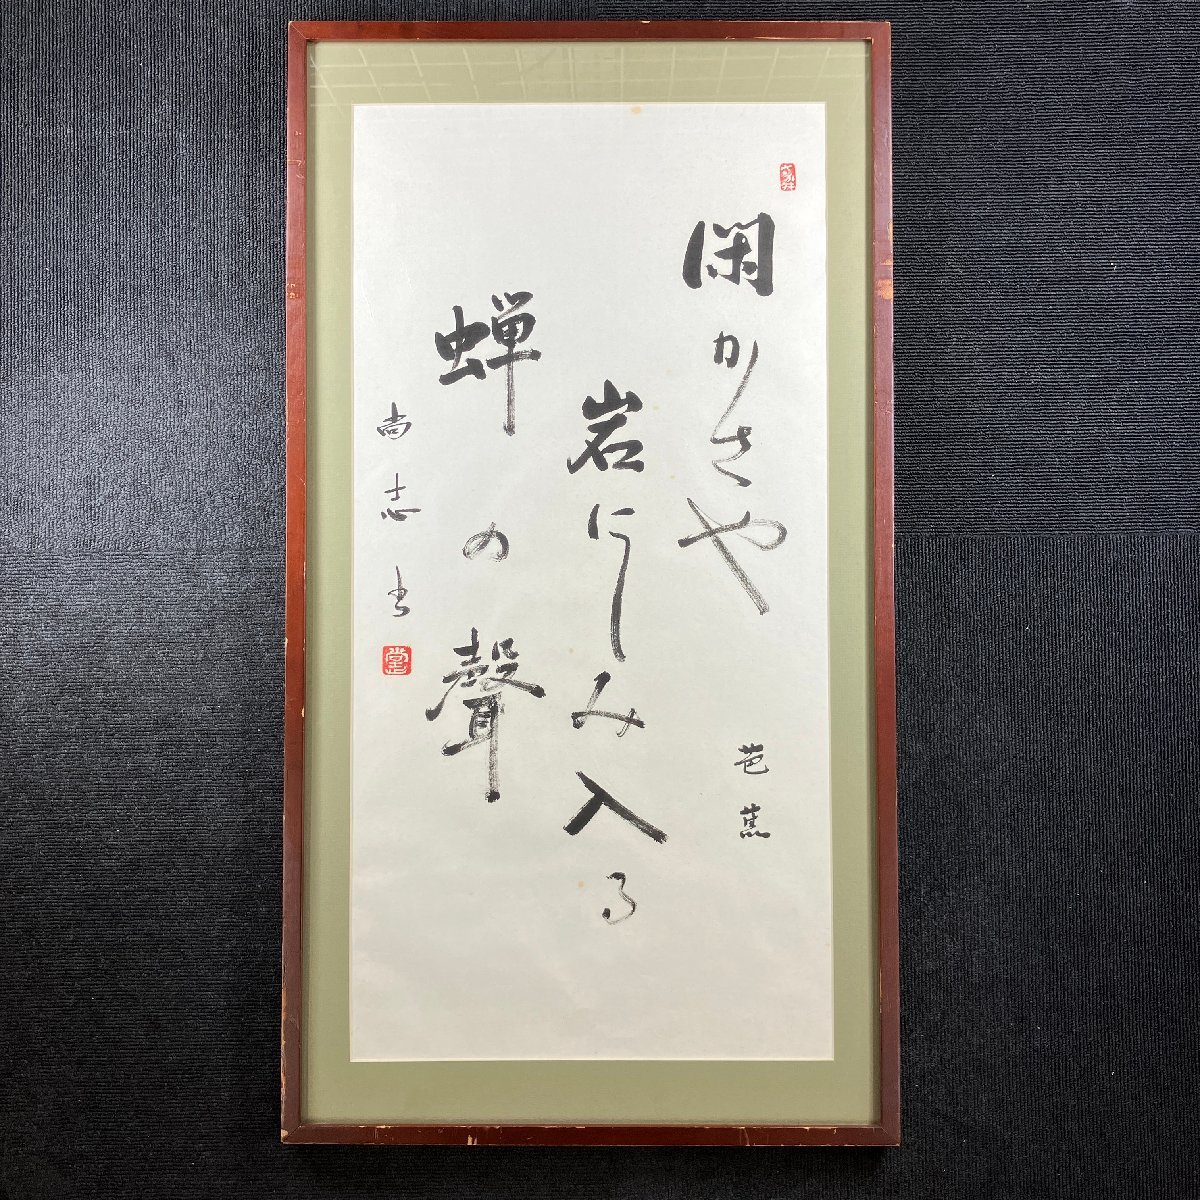 閑かさや
芭蕉
岩にしみ入る
蝉の聲
尚志書